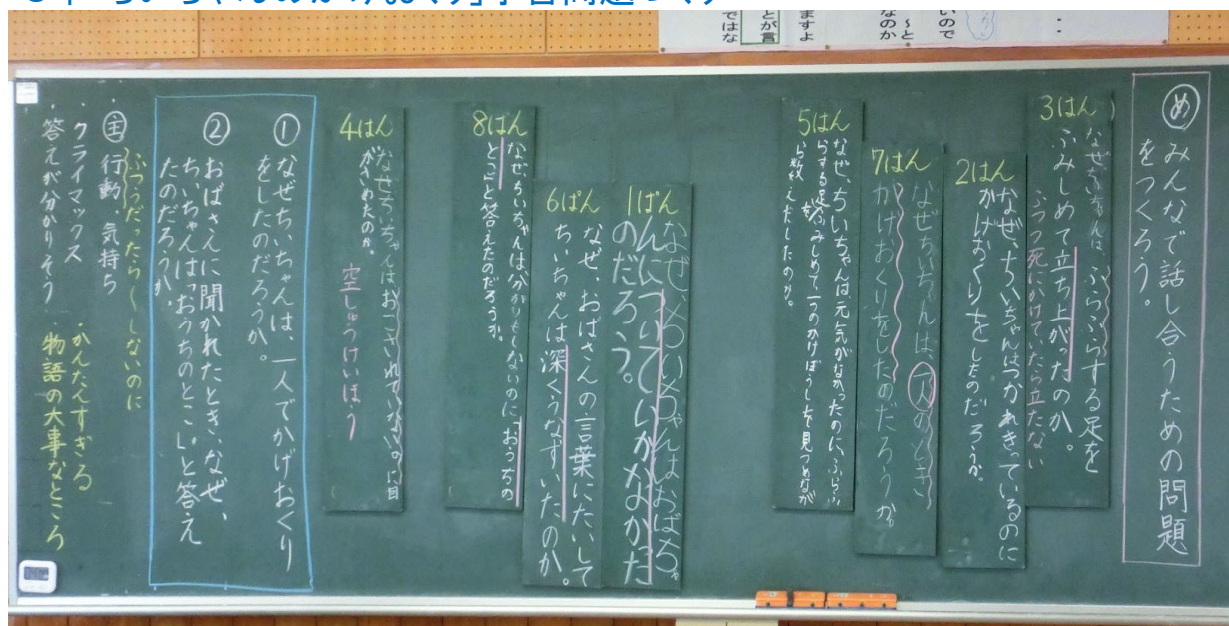 「ちいちゃんのかげおくり」学習問題づくり
めみんなで話し合うための問題
をつくろう。
3はん
なぜちいちゃんは、ふらふらする足を
ふみしめて立ち上がったのか。
ふつう死にかけていたら立たない
2はん
なぜ、ちいちゃんはつかれきっているのに
かげおくりをしたのだろうか。
7はん
なぜちいちゃんは、一人のとき
かげおくりをしたのだろうか。
5はん
なぜ、ちいちゃんは元気がなかったのに、ふらふ
らする足をふみしめて、一つのかげぼうしを見つめなが
ら数えだしたのか。
1ぱん
なぜ、ちいちゃんはおばちゃ
んについていかなかった
のだろう。
6ぱん
なぜ、おばさんの言葉にたいして
ちいちゃんは深くうなずいたのか。
8はん
なぜ、ちいちゃんは、分かりもしないのに「おうちの
とこ」と答えたのだろうか。
4はん
なぜちいちゃんはおこされていないのに目
がさめたのか。
空しゅうけいほう
① なぜちいちゃんは、一人でかげおくり
をしたのだろうか。
② おばさんに聞かれたとき、なぜ、
ちいちゃんは「おうちのとこ」と答え
たのだろうか。
ふつうだったら〜しないのに
・主 行動、気持ち
・クライマックス
・答えが分かりそう
・かんたんすぎる
物語の大事なところ